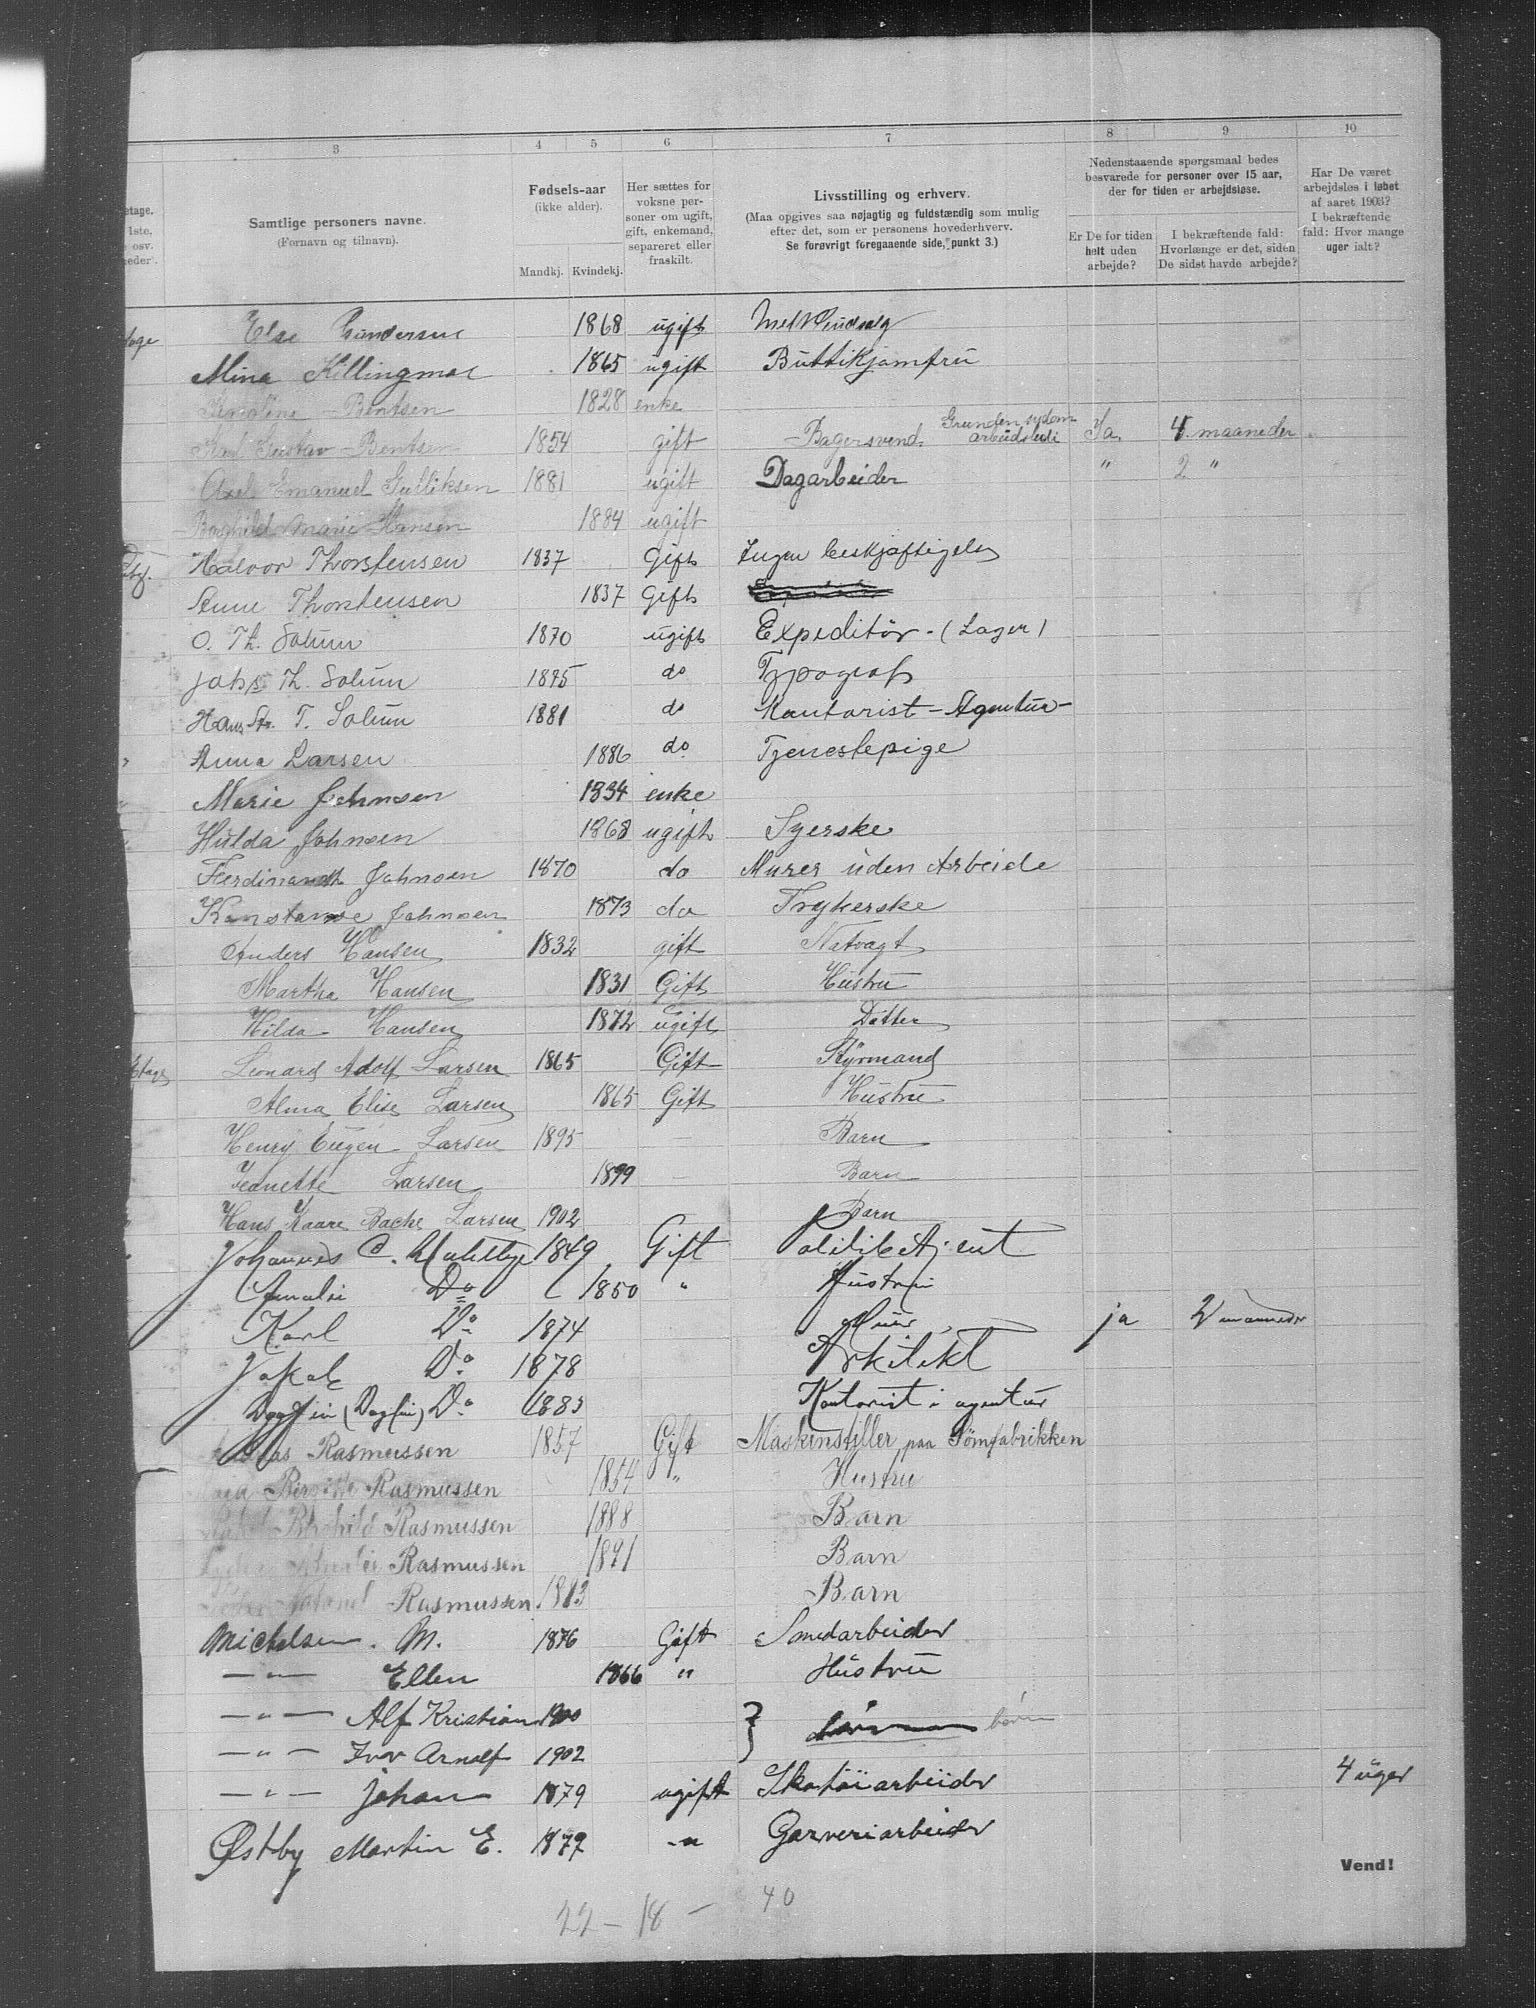 3 4 5 6 7 8 9 10
etage.
1ste,
osv.
eder.
Samtlige personers navne.
(Fornavn og tilnavn).
Fødsels-aar
(ikke alder).
Mandkj. Kvindekj.
Her sættes for
voksne per-
soner om ugift,
gift, enkemand,
separeret eller
fraskilt.
Livsstilling og erhverv.
(Maa opgives saa nøjagtig og fuldstændig som mulig
efter det, som er personens hovederhverv.
Se forøvrigt foregaaende side, punkt 3.)
Nedenstaaende spørgsmaal bedes
besvarede for personer over 15 aar,
der for tiden er arbejdsløse.
Er De for tiden
helt uden
arbejde?
I bekræftende fald:
Hvorlænge er det, siden
De sidst havde arbejde?
Har De været
arbejdsløs i løbet
af aaret 1903?
I bekræftende
fald: Hvor mange
uger ialt?
Else Gundersen 1868 ugift
Mina Killingmoe 1865 ugift Buttikjomfru
Bentsen 1828 enke
Karl Gustav Bentsen 1854 gift Bagersvend. Grunden sydom arbeidsledi Ja 4 maaneder
Axel Emanuel Gulliksen 1881 ugift Dagarbeider " 2 "
Marie Hansen 1884 ugift
Halvor Thorstensen 1837 Gift Ingen beskjæftigelse
Anne Thorstensen 1837 Gift
O. Th. Solum 1870 ugift Expeditør - (Lager)
Johs. Th. Solum 1875 do Typograf
Hans T. Solum 1881 do Kontorist - Agentur -
" Anna Larsen 1886 do Tjenestepige
Marie Johnsen 1834 enke
Hulda Johnsen 1868 ugift Syerske
Ferdinandt Johnsen 1870 do Murer uden Arbeide
Konstanse Johnsen 1873 do Trykerske
Anders Hansen 1832 gift Natvagt
Martha Hansen 1831 Gift Hustru
Hilda Hansen 1872 ugift Datter
Etage Leonard Adolf Larsen 1865 Gift Styrmand
Alma Elise Larsen 1865 Gift Hustru
Henry Eugen Larsen 1895 Barn
Jeanette Larsen 1899 Barn
Hans Kaare Bache Larsen 1902 Barn
Johannes C. 1849 Gift Politibetjent
Amalie Do 1850 " Hustru
Karl Do 1874 ja 2 maaneder
Jakob Do 1878 Arkitekt
(Dagfin) Do 1883 Kontorist i agentur
Rasmussen 1857 Gift Maskinstiller paa Sömfabrikken
Rasmussen 1854 " Hustru
Rasmussen 1888 Barn
Rasmussen 1891 Barn
Rasmussen Barn
Michelsen. M. 1876 Gift Smedarbeider
— " — Ellen 1866 " Hustru
— " — Alf Kristian 1900 } børn
— " — Arnolf 1902
— " — Johan 1879 ugift Skotöiarbeider 4 uger
Østby Martin E. 1877 — " Garveriarbeider
Vend!
22 – 18 – 40